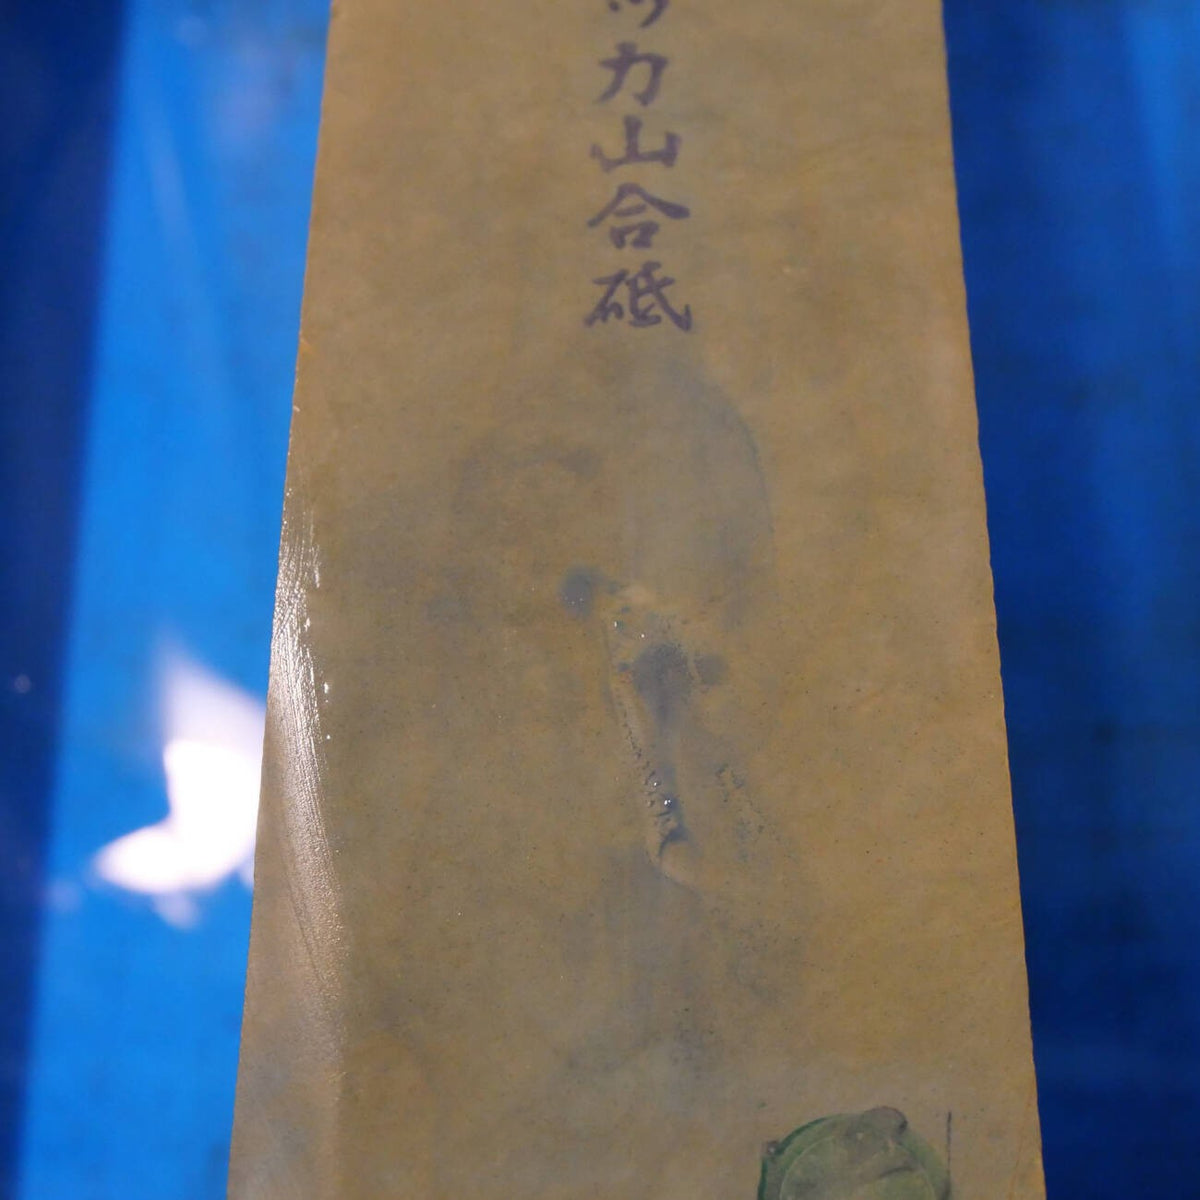 カ山合砥